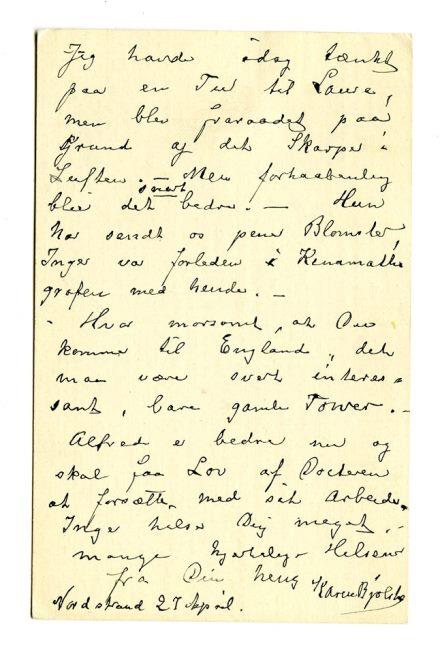 Jeg havde idag tænkt
paa en Tur til Laura,
men blev fraraadet paa
Grund af det Skarpe i
Luften. — Men forhaabentlig
snart
blir det bedre. — Hun
har sendt os pene Blomster,
Inger var forleden i Kinamatho
grafen med hende. —
- Hvor morsomt, at Du
kommer til England, det
maa være svært interes=
sant, bare gamle Tower. —
Alfred er bedre nu og
skal faa Lov af Doctoren
at forsætte med sit Arbeide.
Inger hilser Dig meget. —
mange hjertelige Hilsener
fra Din heng. Karen Bjølstad
Nordstrand 27 April.